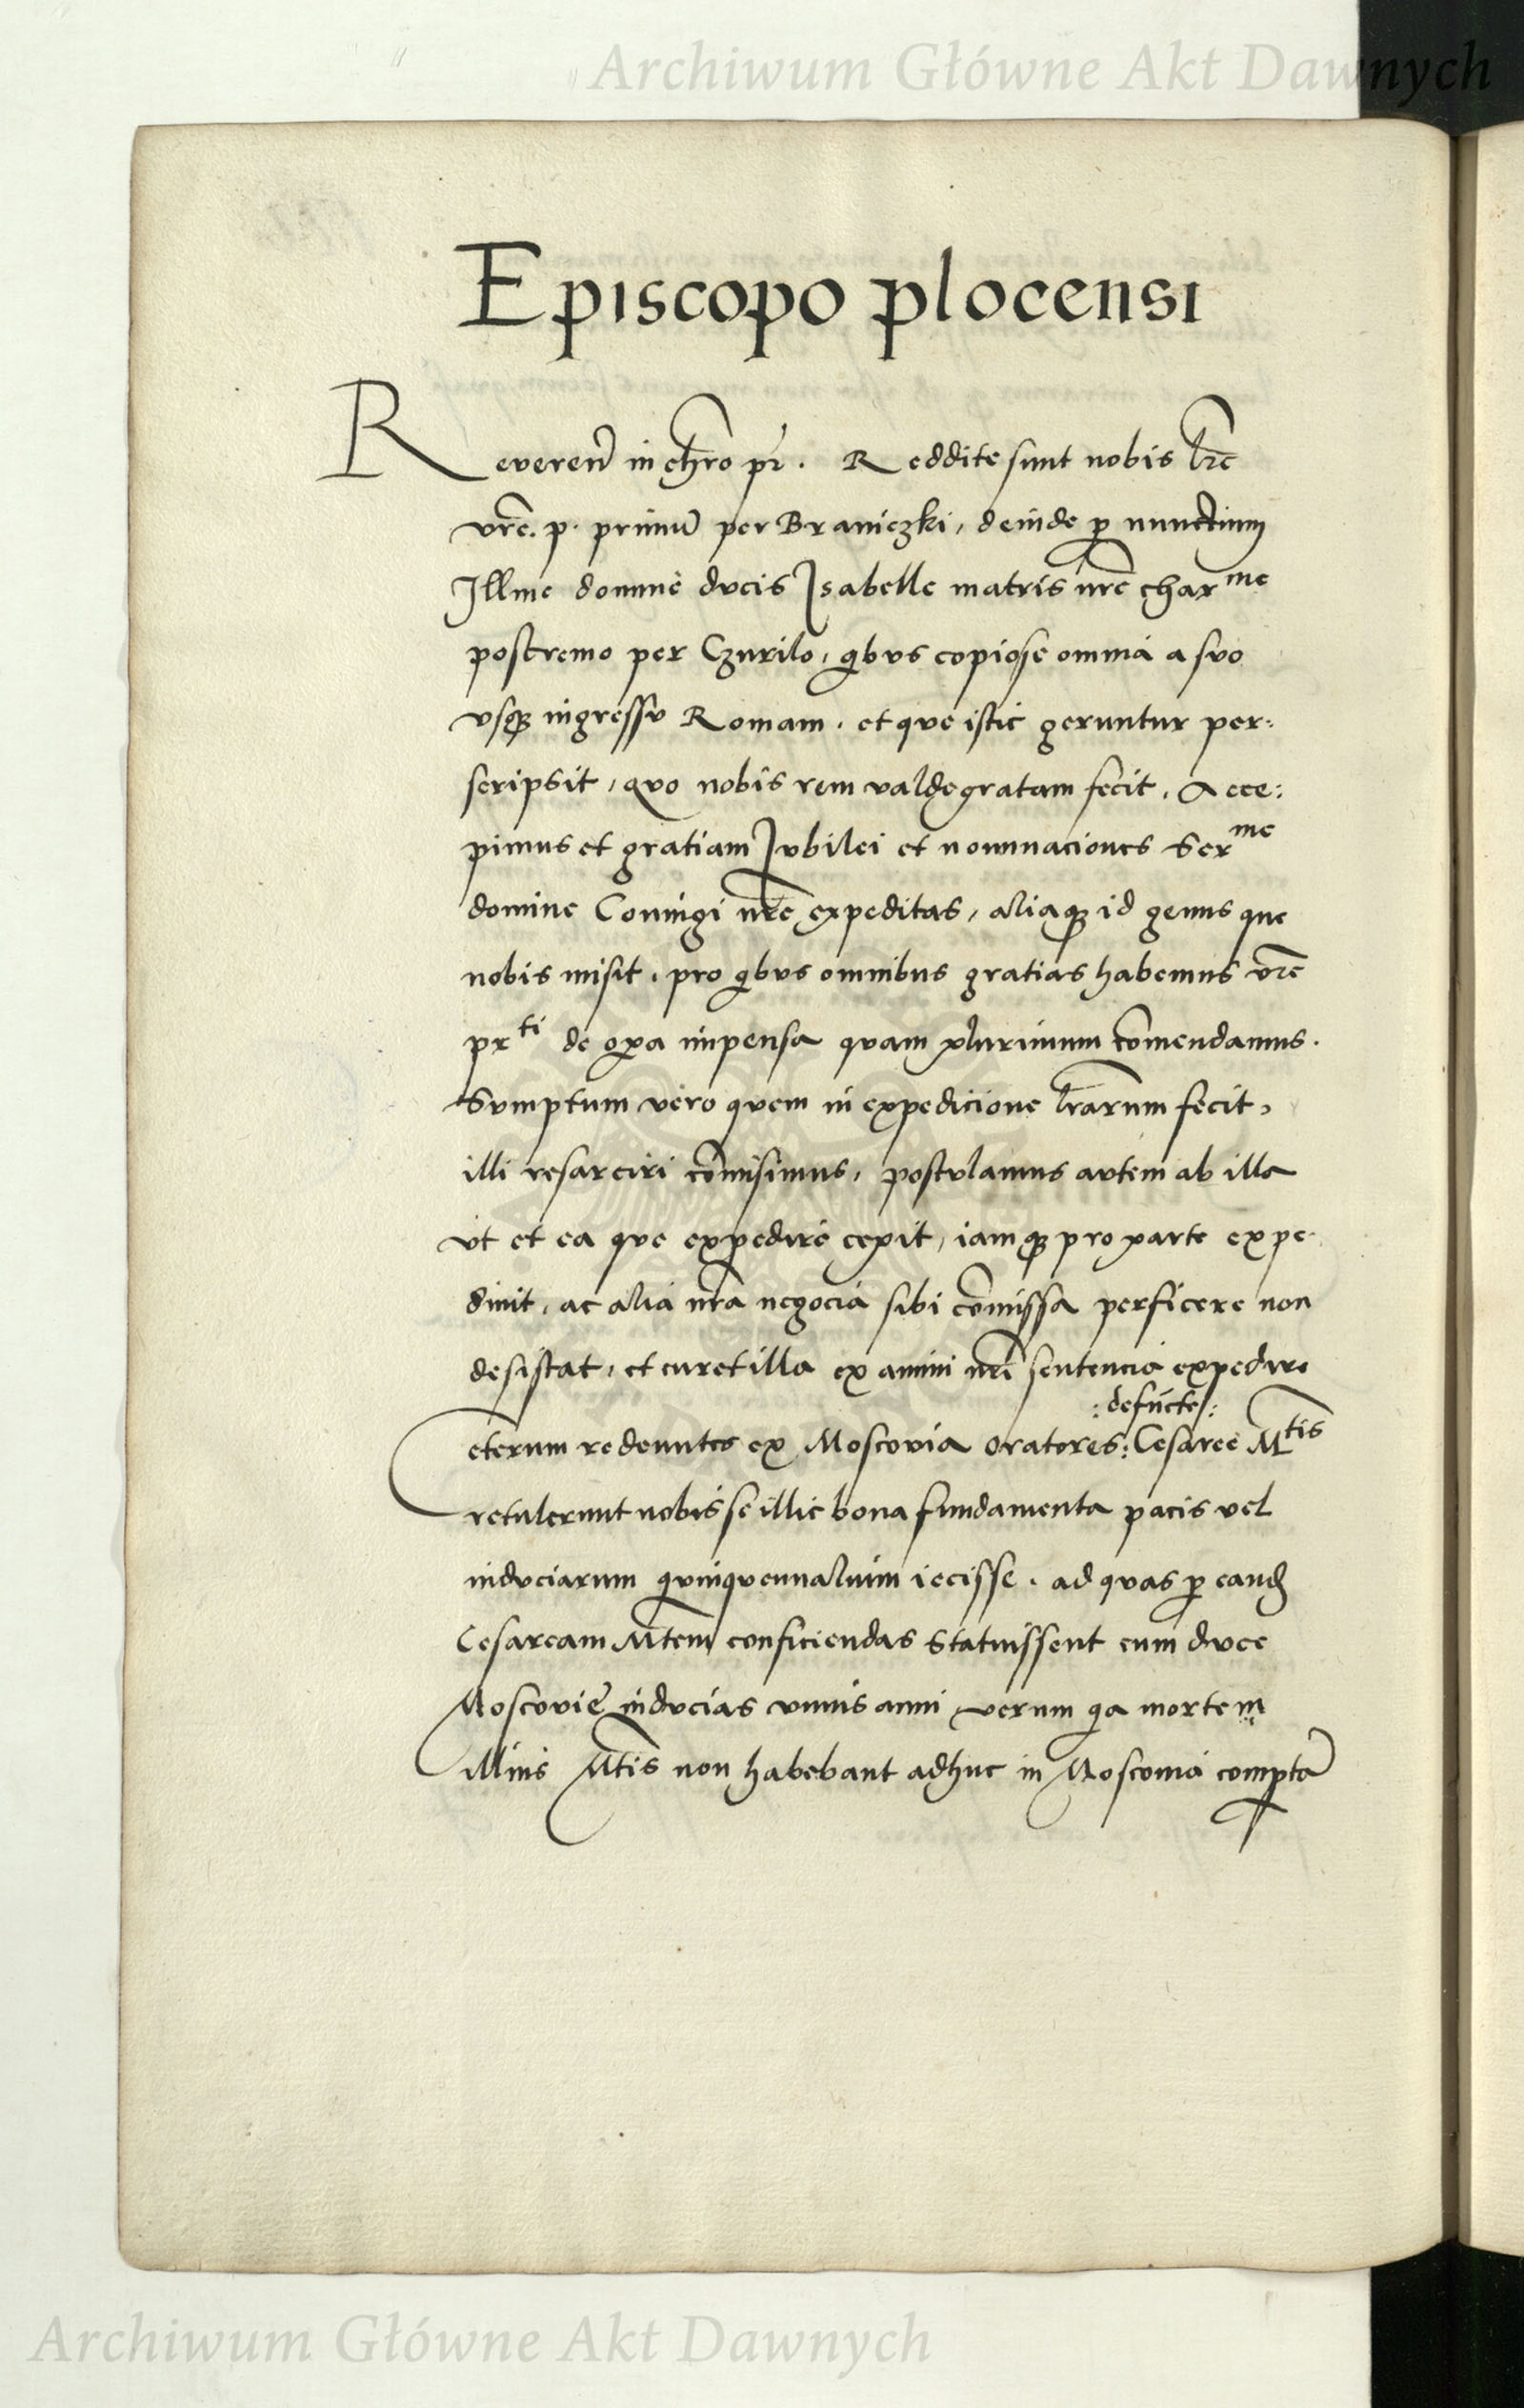 Archiwum Główne Akt Dawnych
Episcopo plocensi
Reveren̄ in chr̄o pr̄. Reddite sunt nobis lr̄e
vr̄e. p. primū per Braniczki, deinde p nunctium
Illme domine ducis Isabelle matris nr̄e char me
postremo per Czurilo, qbus copiose omnia a suo
vsq ingressu Romam. et que istic geruntur per:
scripsit, quo nobis rem valde gratam fecit. Acce:
pimus et gratiam Jubilei et nominaciones Ser me
domine Coniugi nr̄e expeditas, aliaq id genus que
nobis misit. pro qbus omnibus gratias habemus vr̄e
pr ti de opa impensa quam plurimum com̄endamus.
Sumptum vero quem in expedicione lr̄arum fecit,
illi resarciri com̄isimus, postulamus autem ab illa
vt et ea que expedire cepit, iamq pro parte expe
diuit, ac alia nr̄a negocia sibi com̄issa perficere non
desistat, et curet illa ex animi nr̄i sentencia expedire
:defūcte:
Ceterum redeuntes ex Moscovia oratores: Cesaree M tis
retulerunt nobis se illic bona fundamenta pacis vel
induciarum quinquennalium iecisse. ad quas p eand
Cesaream Mtem conficiendas statuissent cum duce
Moscovie inducias vnius anni verum qa mortem
illius Mtis non habebant adhuc in Moscouia compta
Archiwum Główne Akt Dawnych